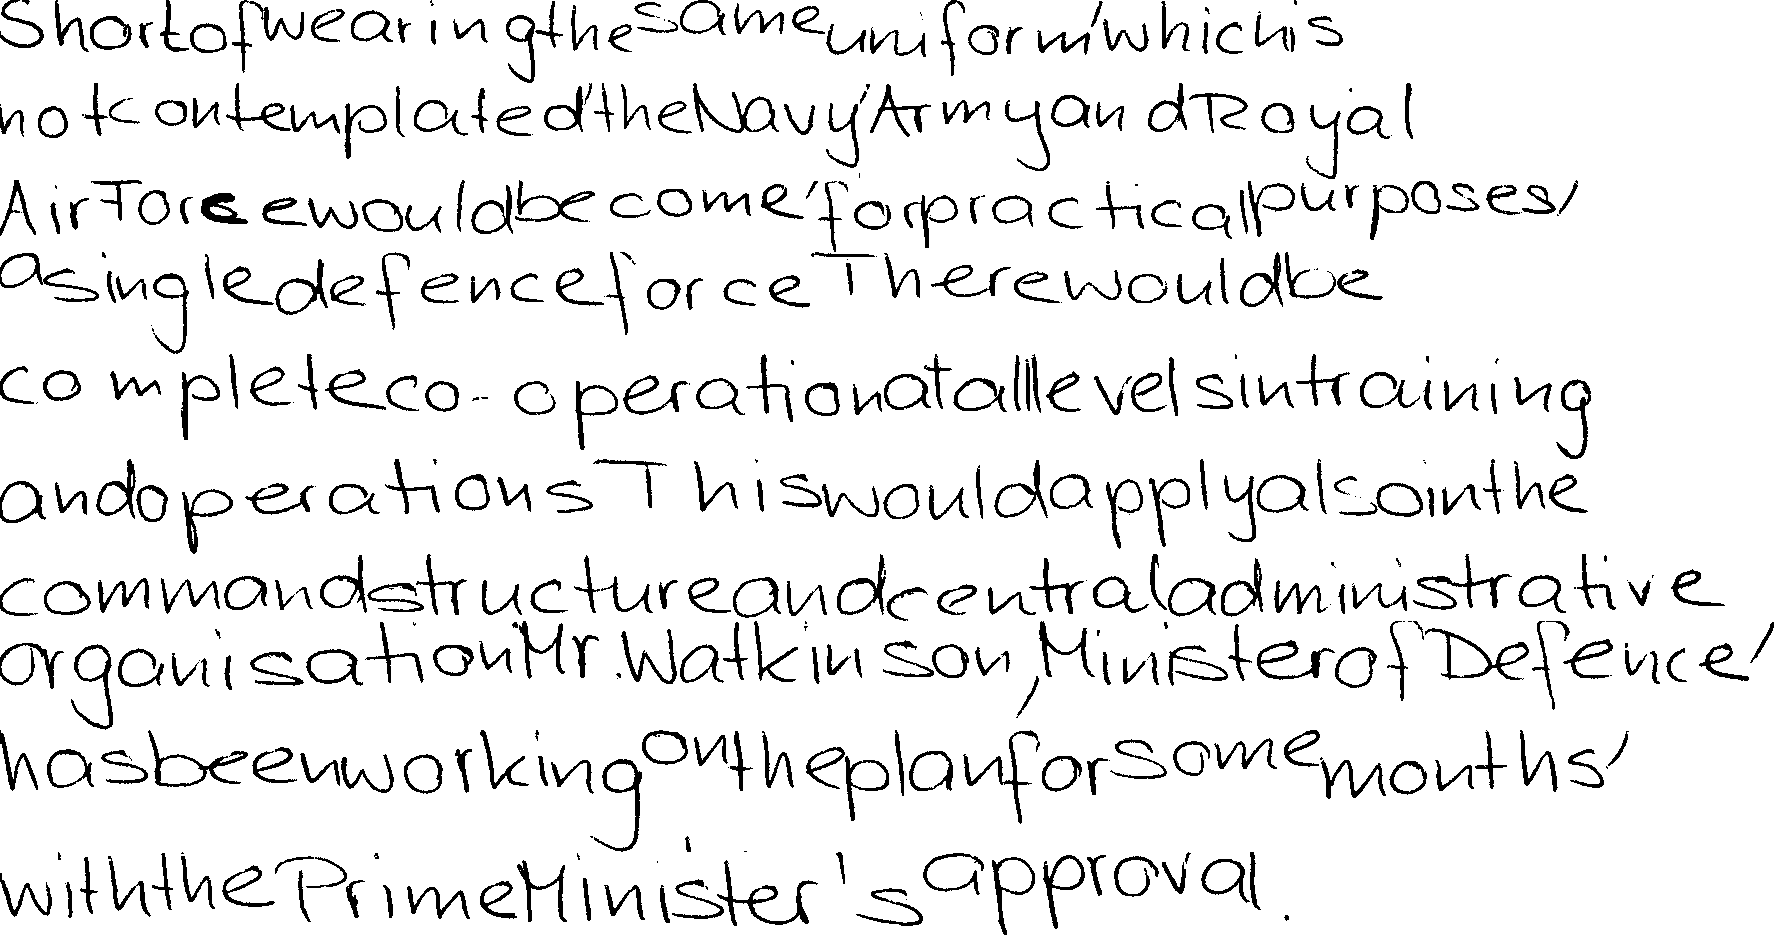 Short of wearing the same uniform, which is
not contemplated, the Navy, Army and Royal
Air Force would become, for practical purposes,
a single defence force There would be
complete co-operation at all levels in training
and operations This would apply also in the
command structure and central administrative
organisation Mr. Watkinson, Minister of Defence,
has been working on the plan for some months,
with the Prime Minister's approval.